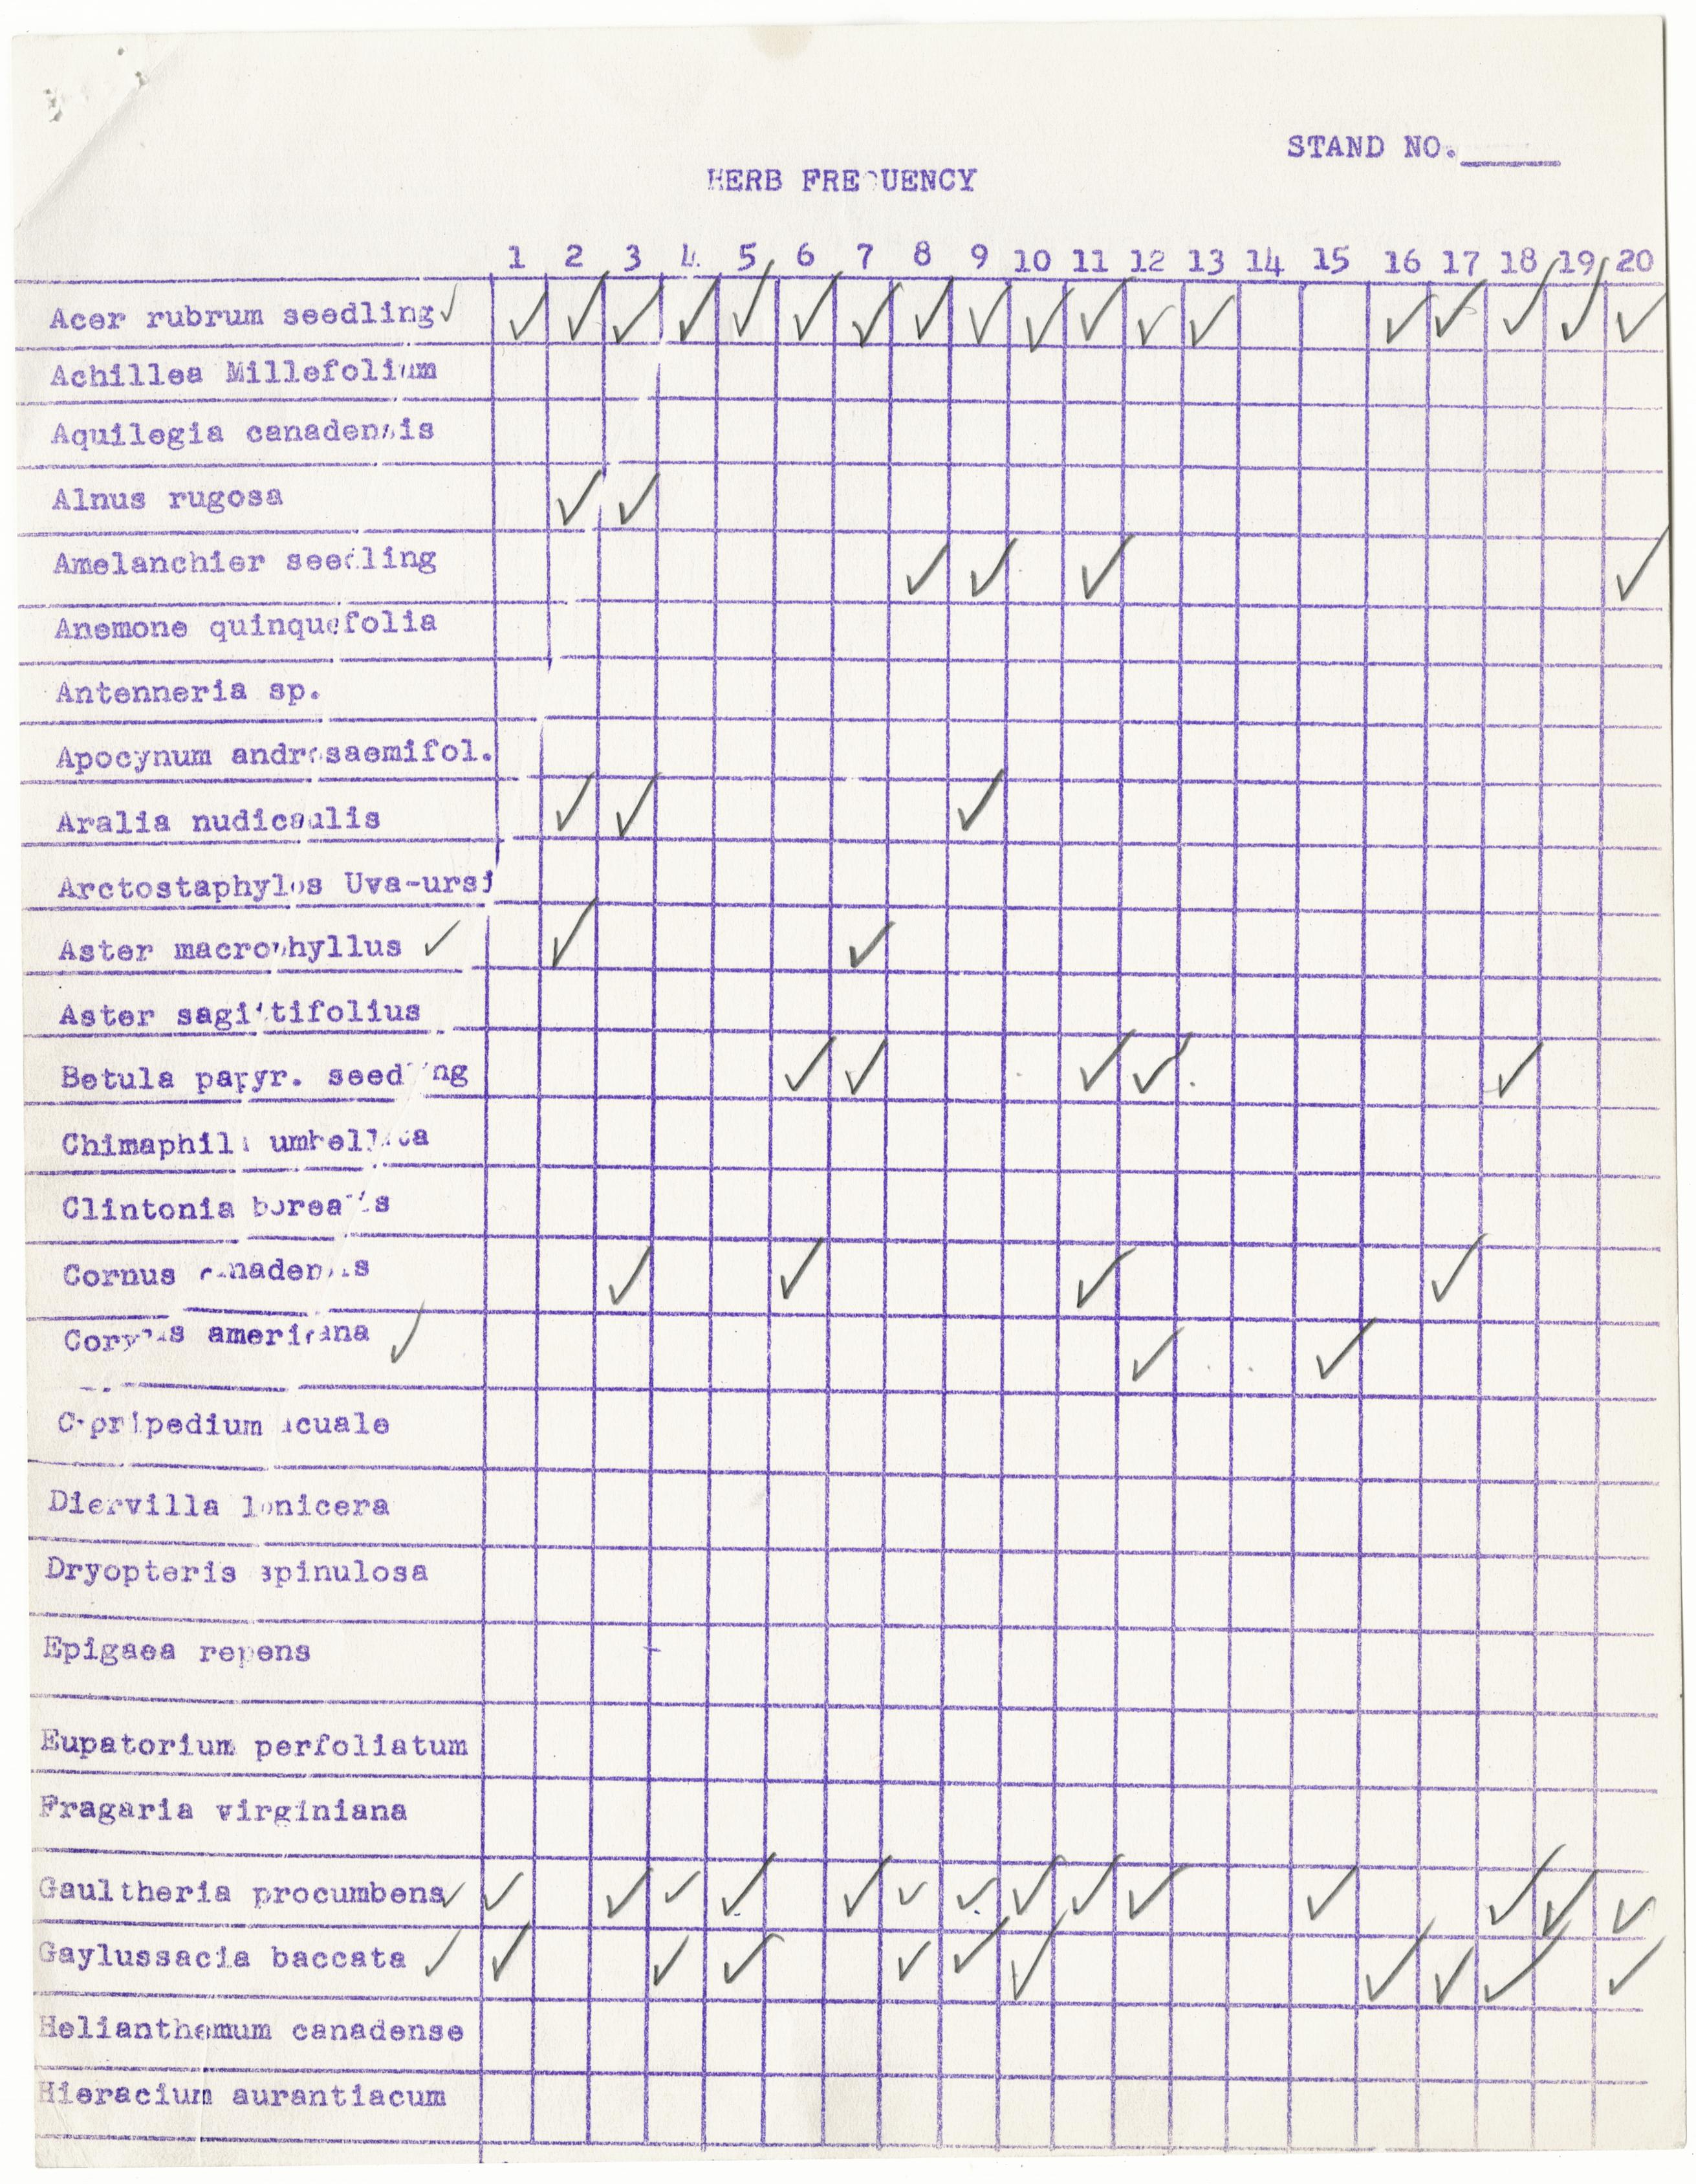 STAND NO.____
HERB FREQUENCY
1 2 3 4 5 6 7 8 9 10 11 12 13 14 15 16 17 18 19 20
Acer rubrum seedling ✓ ✓ ✓ ✓ ✓ ✓ ✓ ✓ ✓ ✓ ✓ ✓ ✓ ✓ ✓ ✓ ✓ ✓ ✓
Achillea Millefolium
Aquilegia canadensis
Alnus rugosa ✓ ✓
Amelanchier seedling ✓ ✓ ✓ ✓
Anemone quinquefolia
Antenneria sp.
Apocynum androsaemifol.
Aralia nudicaulis ✓ ✓ ✓
Arctostaphylos Uva-ursi
Aster macrophyllus ✓ ✓ ✓
Aster sagittifolius
Betula papyr. seedling ✓ ✓ ✓ ✓ ✓
Chimaphila umbellata
Clintonia borealis
Cornus canadensis ✓ ✓ ✓ ✓
Corylus americana ✓ ✓ ✓
Cypripedium acuale
Diervilla lonicera
Dryopteris spinulosa
Epigaea repens
Eupatorium perfoliatum
Fragaria virginiana
Gaultheria procumbens ✓ ✓ ✓ ✓ ✓ ✓ ✓ ✓ ✓ ✓ ✓ ✓ ✓ ✓ ✓
Gaylussacia baccata ✓ ✓ ✓ ✓ ✓ ✓ ✓ ✓ ✓ ✓ ✓
Helianthemum canadense
Hieracium aurantiacum